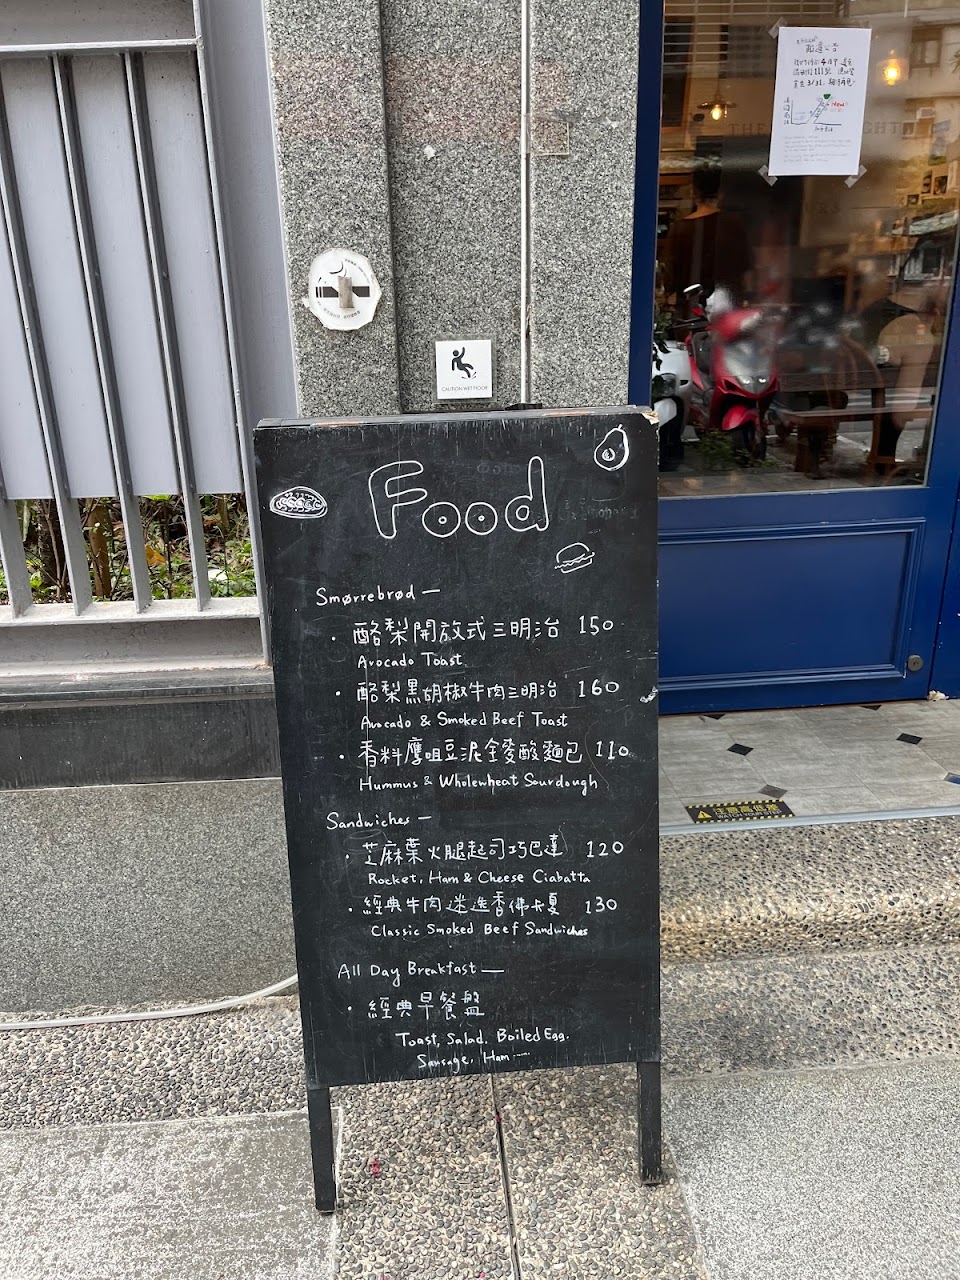 Food
Smørrebrød —
· 酪梨開放式三明治 150
Avocado Toast
· 酪梨黑胡椒牛肉三明治 160
Avocado & Smoked Beef Toast
· 香料鹰咀豆泥全麥酸麵包 110
Hummus & Wholewheat Sourdough
Sandwiches —
· 芝麻葉火腿起司巧巴達 120
Rocket, Ham & Cheese Ciabatta
· 經典牛肉迷迭香佛卡夏 130
Classic Smoked Beef Sandwiches
All Day Breakfast —
· 經典早餐盤
Toast, Salad. Boiled Egg.
Sausage, Ham ......
CAUTION WET FLOOR
搬遷公告
New
注意高低差